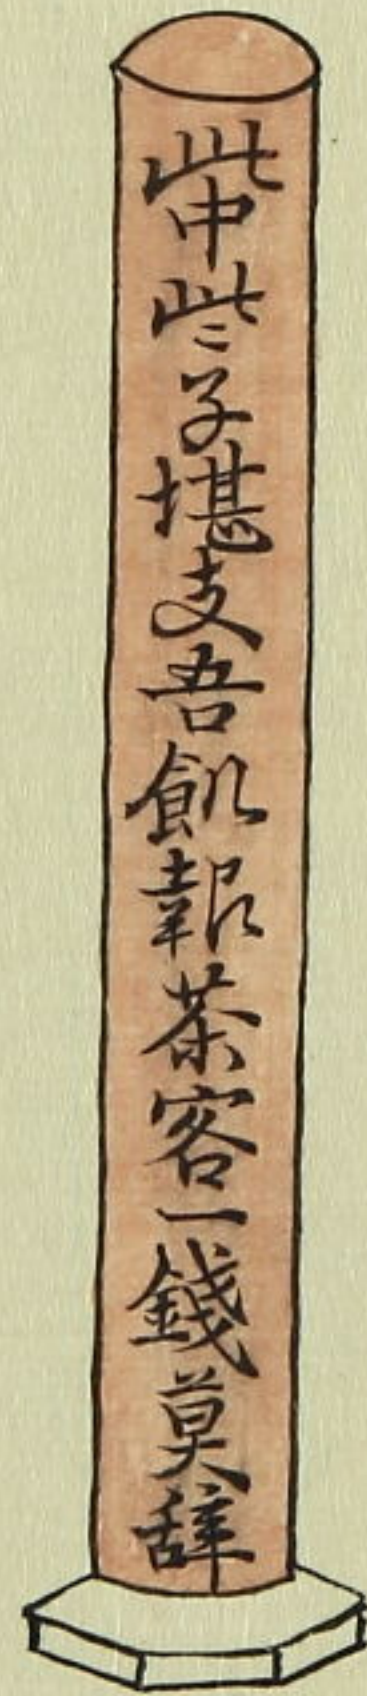 此中些子堪支吾飢報茶客一錢莫辞